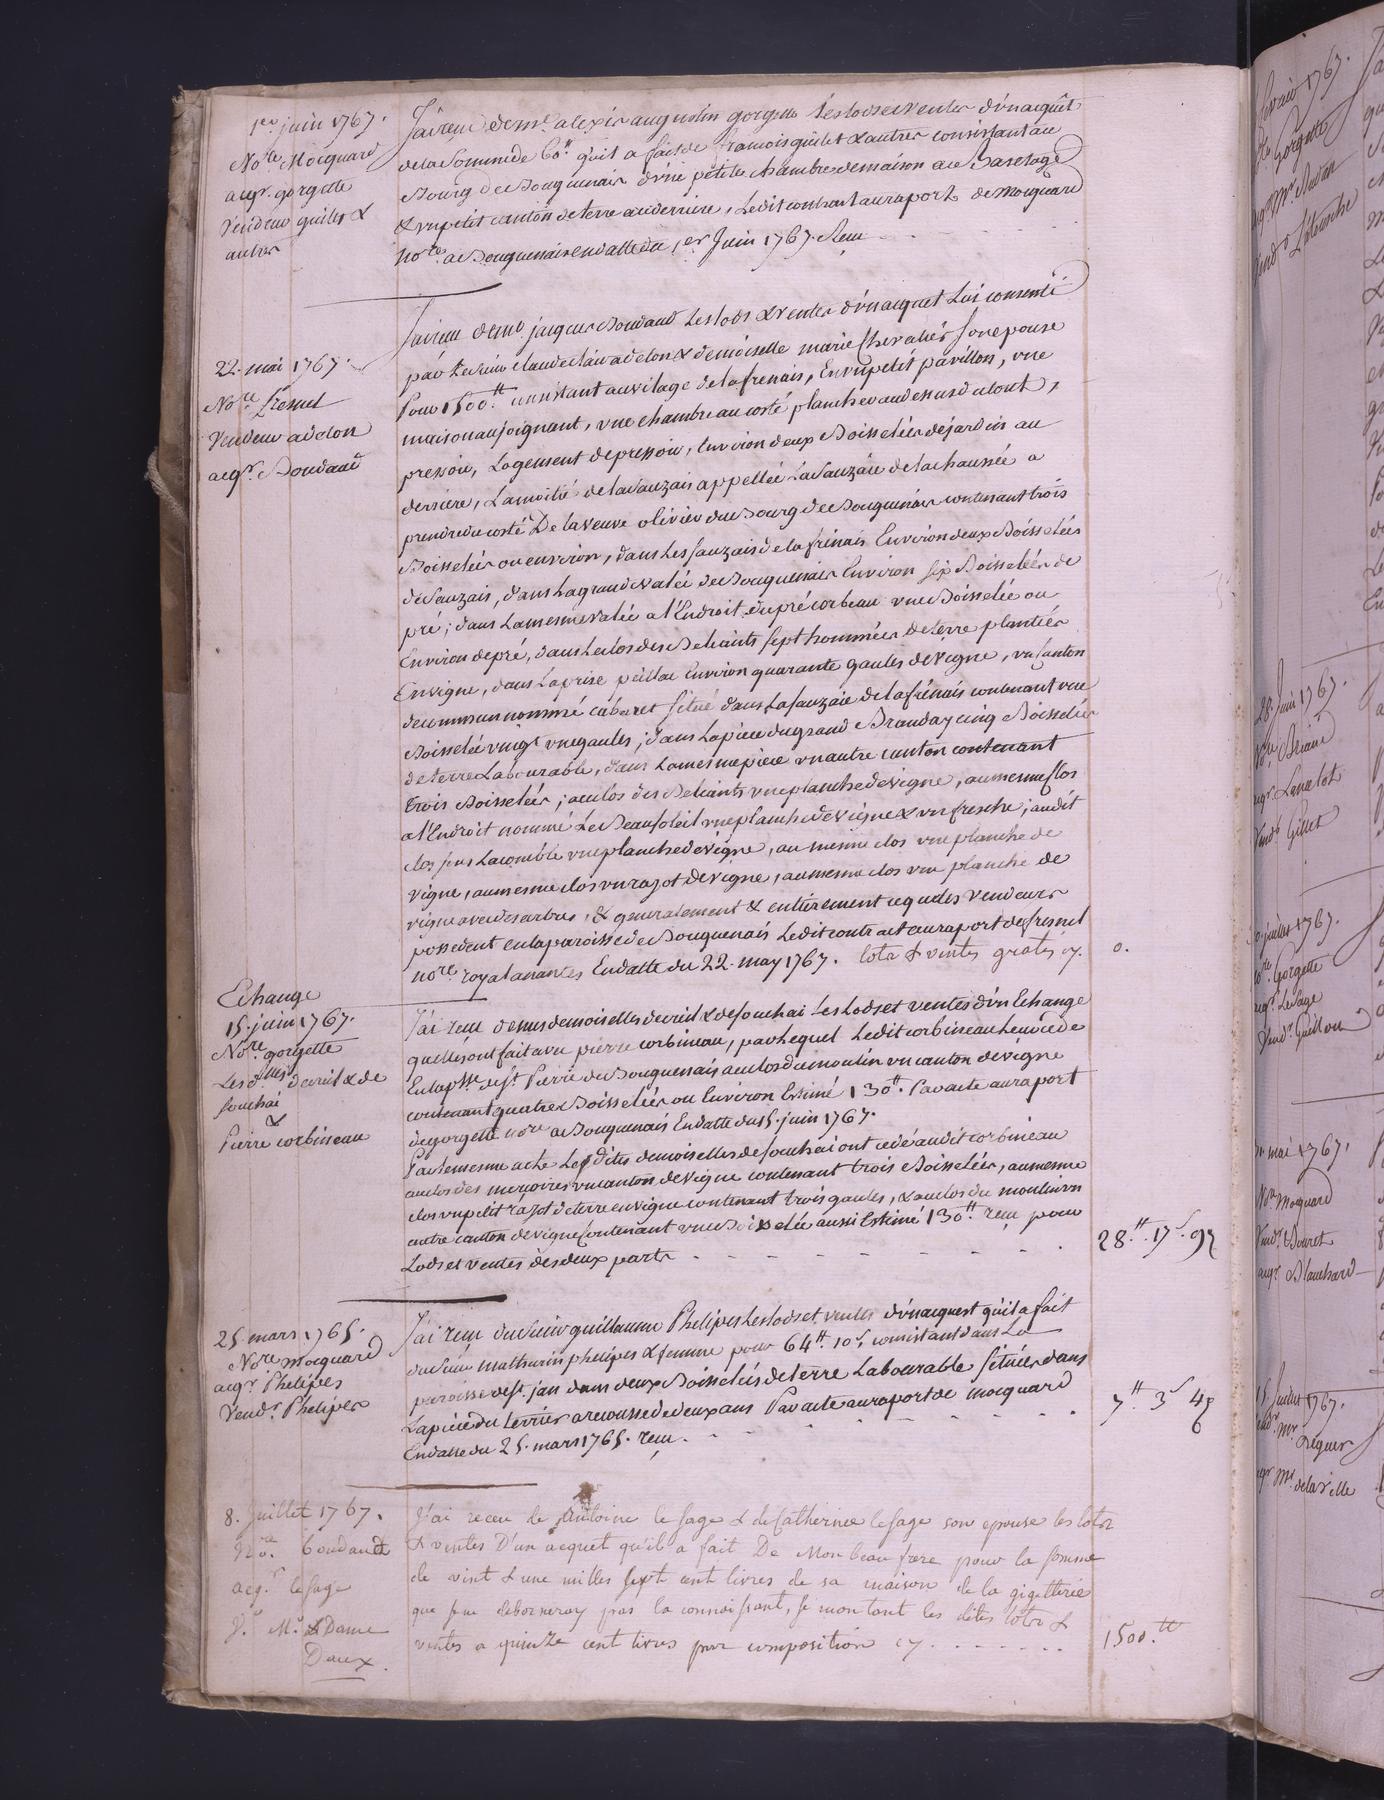 1er juin 1767.
Nore. Mocquard
aeqr. gorgette
Vendeur quillet &
autres
J'ai reçu de mr. alexis augustin gorgette les lods et ventes d'un acquêt
de la Somme de 60tt qu'il a fait de francois quillet & autres consistant au
Bourg de Bouguenais d'une petite chambre de maison au
& un petit canton de terre au derriere, Ledit contrat au raport de Mocquard
nore. a Bouguenais en datte du 1er Juin 1767. Reçu
22. mai 1767.
Nore. fresnel
Vendeur adelon
aeqr. Boudaud
J'ai reçu de mr. jacques Boudaud Les lods & ventes d'un acquet Lui consenti
par Le sieur claude clair adelon & demoiselle marie Chevalier Son epouse
Pour 1500tt. consistant au vilage de la frenais, En un petit pavillon, une
maison au joignant, une chambre au costé plancher au dessus du tout,
pressoir, Logement de pressoir, Environ deux Boisselées de jardin au
derriere, La moitié de la sauzais appellée La Sauzaie de la chaussée a
prendre du costé De la veuve olivier du Bourg de Bouguenais contenant trois
Boisselées ou environ, dans Les sauzais de la frénais Environ deux Boisselées
de Sauzais, dans La grande valée de Bouguenais Environ six Boisselées de
pré; dans La mesme valée a l'Endroit du pré corbeau une Boisselée ou
Environ de pré, dans Le clos des Behaints sept hommées de terre plantées
En vigne, dans La prise Environ quarante gaules de Vigne, un Canton
de commun nommé cabaret situé dans La sauzaie de la frénais contenant une
Boisselée vingt une gaules; dans La piece du grand Branday cinq Boisselées
de terre Labourable, dans La mesme piece un autre canton contenant
trois Boisselées; au clos des Behaints une planche de vigne, au mesme clos
a l'Endroit nommé Le Beau soleil une planche de vigne & un fresche; audit
clos une planche de vigne, au mesme clos une planche de
vigne, au mesme clos un razot de vigne, au mesme clos une planche de
vigne avec des arbres, & generalement & entièrement ce que les vendeurs
possedent en la paroisse de Bouguenais Ledit contract au raport de fresnel
nore. royal a nantes En datte du 22. may 1767. lots & ventes gratis cy. 0.
Echange
15. juin 1767.
Nore. gorgette
Les dlles. de & de
fouchai
&
Pierre corbineau
J'ai reçu de mes demoiselles de & de fouchai Les Lods et ventes d'un Echange
quelles ont fait avec pierre corbineau, par Lequel Ledit corbineau Leur cede
En la psse. de st. Pierre de Bouguenais au clos du moulin un canton de vigne
contenant quatre Boisselées ou Environ Estimé 130tt. Par acte au raport
de gorgette nore. a Bouguenais En datte du 15. juin 1767.
Par le mesme acte Lesdites demoiselles de fouchai ont cedé audit corbineau
au clos des un canton de vigne contenant trois Boisselées, au mesme
clos un petit razot de terre en vigne contenant trois gaules, & au clos du moulin un
autre canton de vigne Contenant une Boisselée aussi Estimé 130tt. reçu pour
Lods et ventes des deux parts 28tt. 17s. 9d
25. mars 1765.
Nore. mocquard
aeqr. Phelipes
Vendr. Phelipes
J'ai reçu du Sieur guillaume Phelipes Les lods et ventes d'un acquest qu'il a fait
du Sieur mathurin phelipes & femme pour 64tt. 10s. consistant dans La
paroisse de st. jan dans deux Boisselées de terre Labourable Situées dans
La piece du Levrier a recousse de deux ans Par acte au raport de mocquard
En datte du 25. mars 1765. reçu. 7tt. 3s 4d
8. Juillet 1767.
Nore. Boudaud
acqr. le sage
Vr. Mr. & Dame
Daux.
J'ai receu de Antoine le sage & de Catherine le sage son epouse les lots
& ventes D'un acquet qu'il a fait De Mon beau frere pour la somme
de vint & une milles sept cent livres de sa maison de la gigetterie
que je ne deborneray pas la connoissant, se montant les dites lots &
ventes a quinze cent livres par composition cy 1500.tt
fevrier 1767.
gorgette
28. Juin 1767.
Nore. Briand
aqr. Lancelot
Vendr. Gillet
juillet 1767.
nore. Gorgette
aqr. Le sage
Vendr. Guillou
mai 1767.
Nore. Moquard
Vendr. Douret
aqr. Blanchard
15. Juillet 1767.
aqr. Mr. delaville